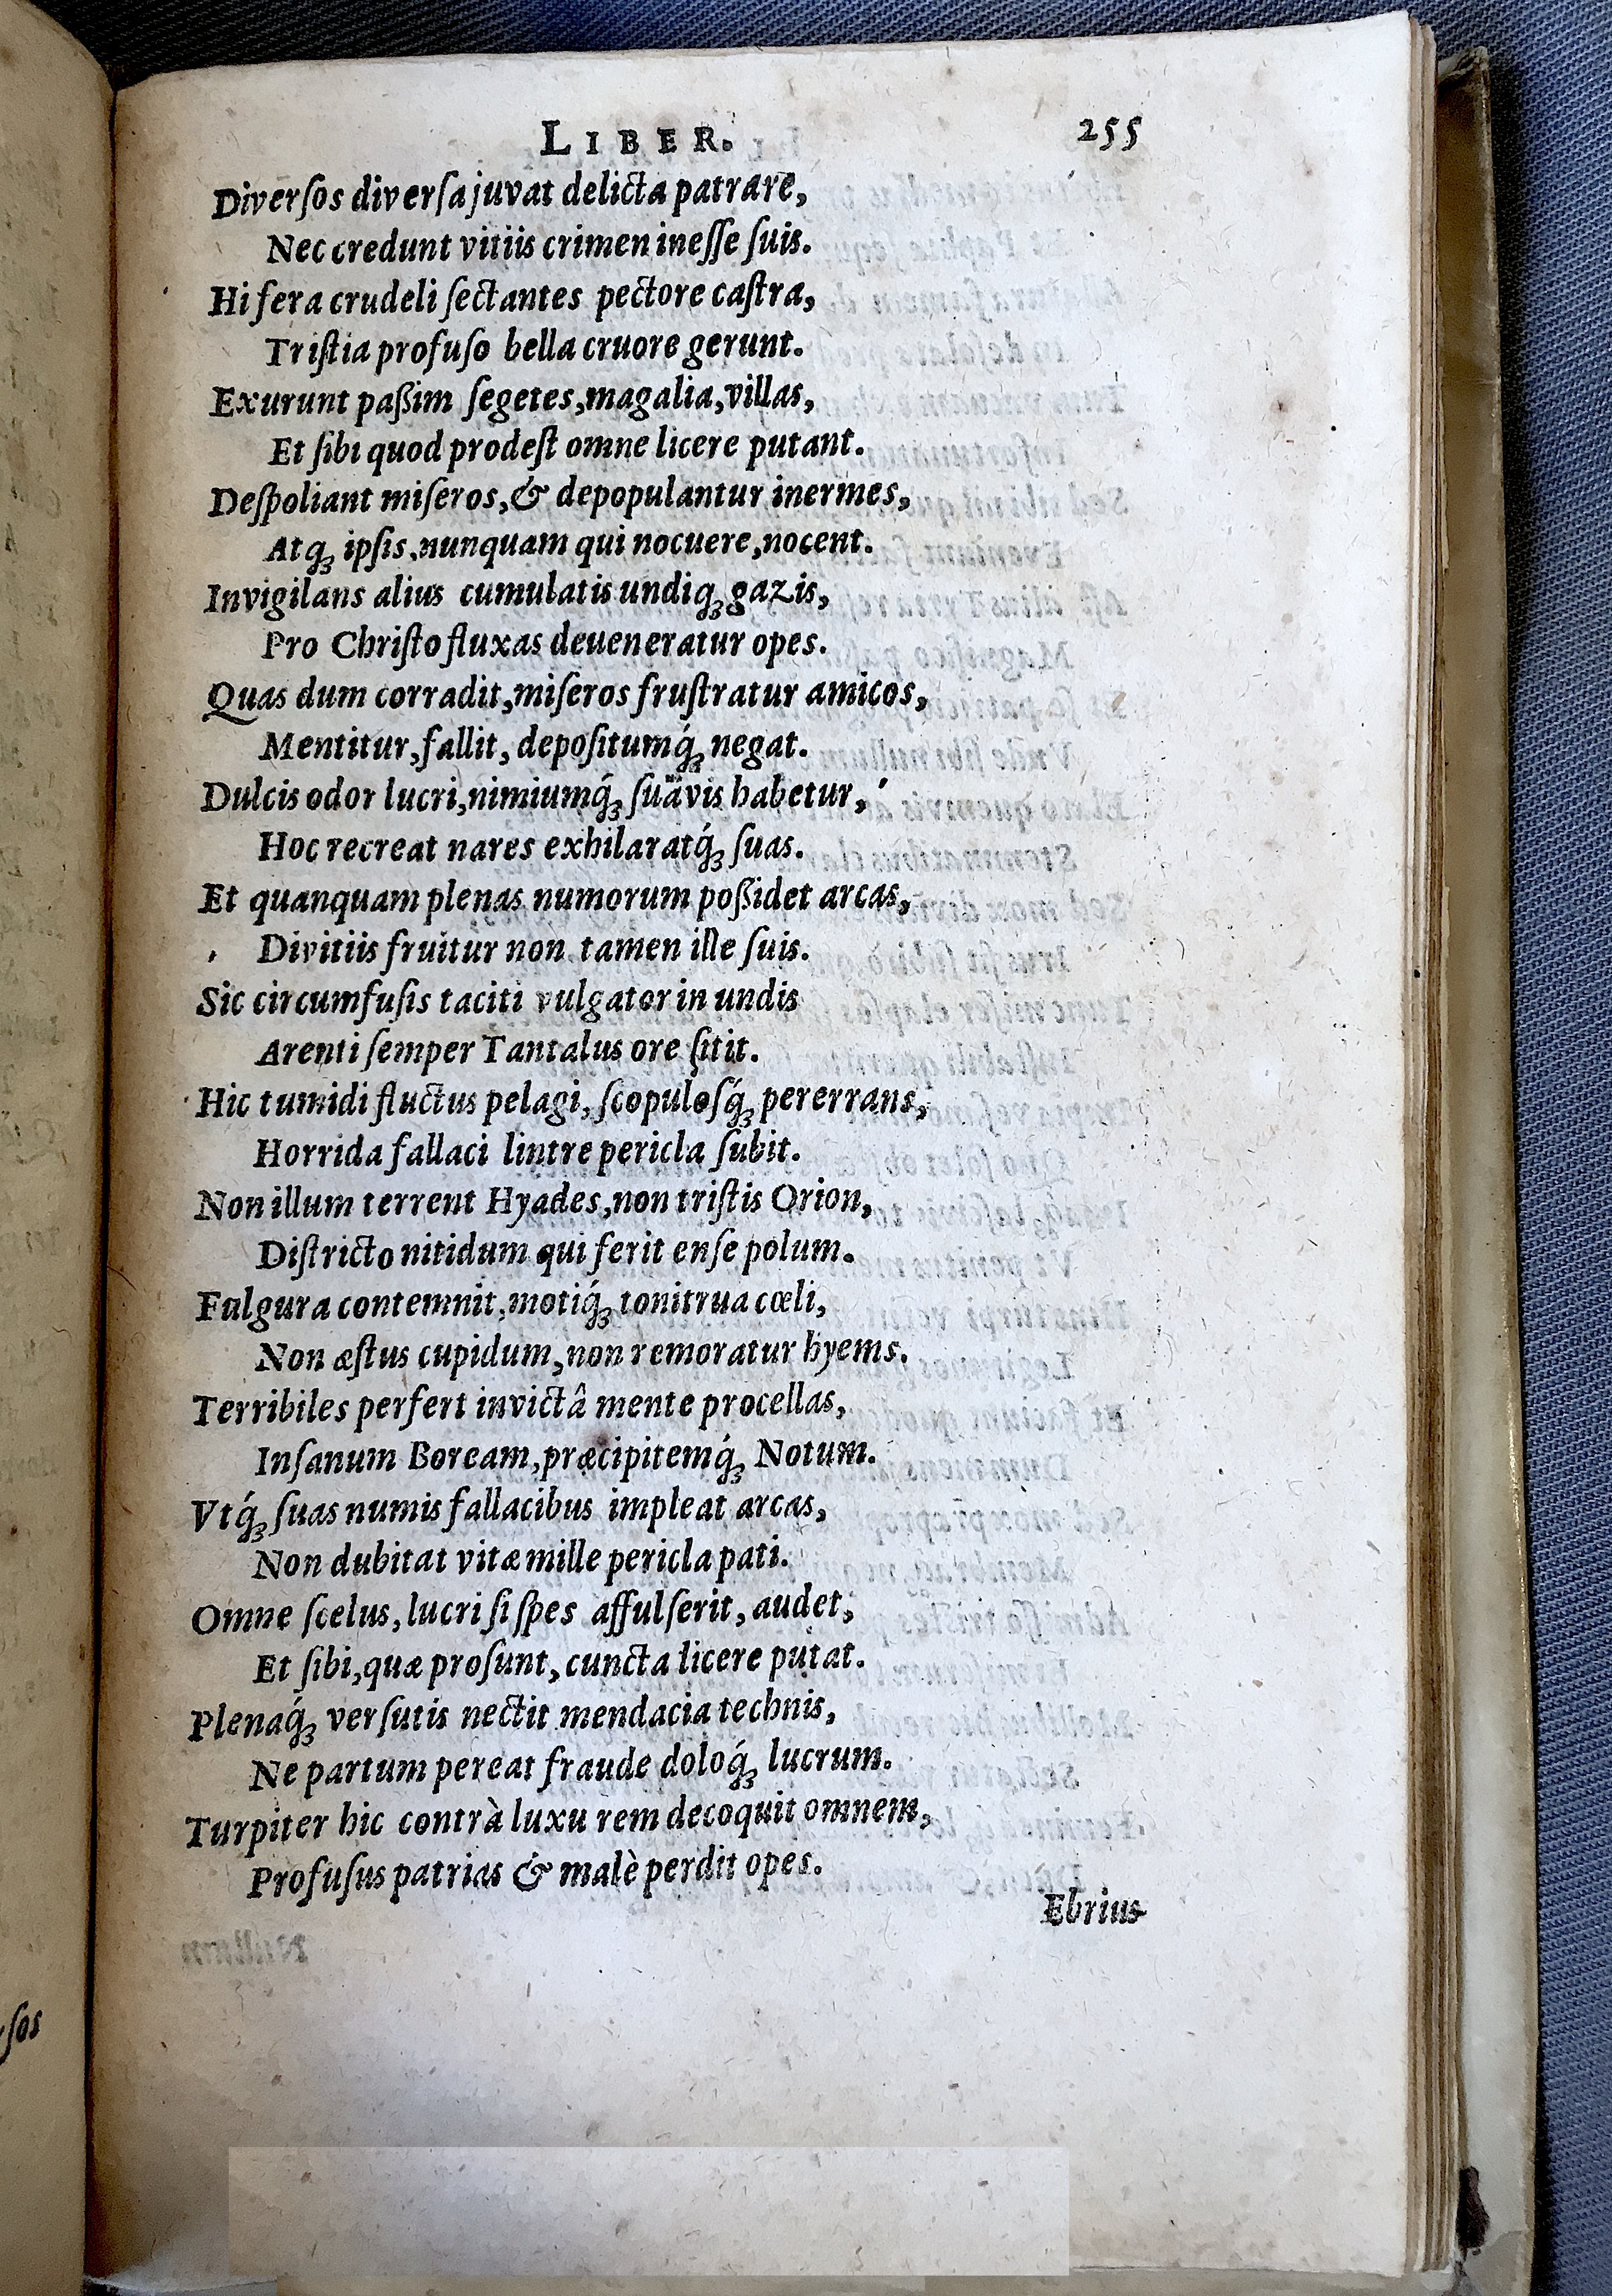 LIBER. 255
Diverſos diverſa juvat delicta patrare,
Nec credunt vitiis crimen ineſſe ſuis.
Hi fera crudeli ſectantes pectore caſtra,
Triſtia profuſo bella cruore gerunt.
Exurunt paßim ſegetes, magalia, villas,
Et ſibi quod prodeſt omne licere putant.
Deſpoliant miſeros, & depopulantur inermes,
Atq́ꝫ ipſis, nunquam qui nocuere, nocent.
Invigilans alius cumulatis undiq́ꝫ gazis,
Pro Chriſto fluxas deueneratur opes.
Quas dum corradit, miſeros fruſtratur amicos,
Mentitur, fallit, depoſitumq́ꝫ negat.
Dulcis odor lucri, nimiumq́ꝫ ſuävis habetur,
Hoc recreat nares exhilaratq́ꝫ ſuas.
Et quanquam plenas numorum poßidet arcas,
Divitiis fruitur non tamen ille ſuis.
Sic circumfuſis taciti vulgator in undis
Arenti ſemper Tantalus ore ſitit.
Hic tumidi fluctus pelagi, ſcopuloſq́ꝫ pererrans,
Horrida fallaci lintre pericla ſubit.
Non illum terrent Hyades, non triſtis Orion,
Diſtricto nitidum qui ferit enſe polum.
Fulgura contemnit, motiq́ꝫ tonitrua cœli,
Non æſtus cupidum, non remoratur hyems.
Terribiles perfert invictâ mente procellas,
Inſanum Boream, præcipitemq́ꝫ Notum.
Vtq́ꝫ ſuas numis fallacibus impleat arcas,
Non dubitat vitæ mille pericla pati.
Omne ſcelus, lucri ſi ſpes affulſerit, audet,
Et ſibi, quæ proſunt, cuncta licere putat.
Plenaq́ꝫ verſutis nectit mendacia technis,
Ne partum pereat fraude doloq́ꝫ lucrum.
Turpiter hic contrà luxu rem decoquit omnem,
Profuſus patrias & malè perdit opes.
Ebrius